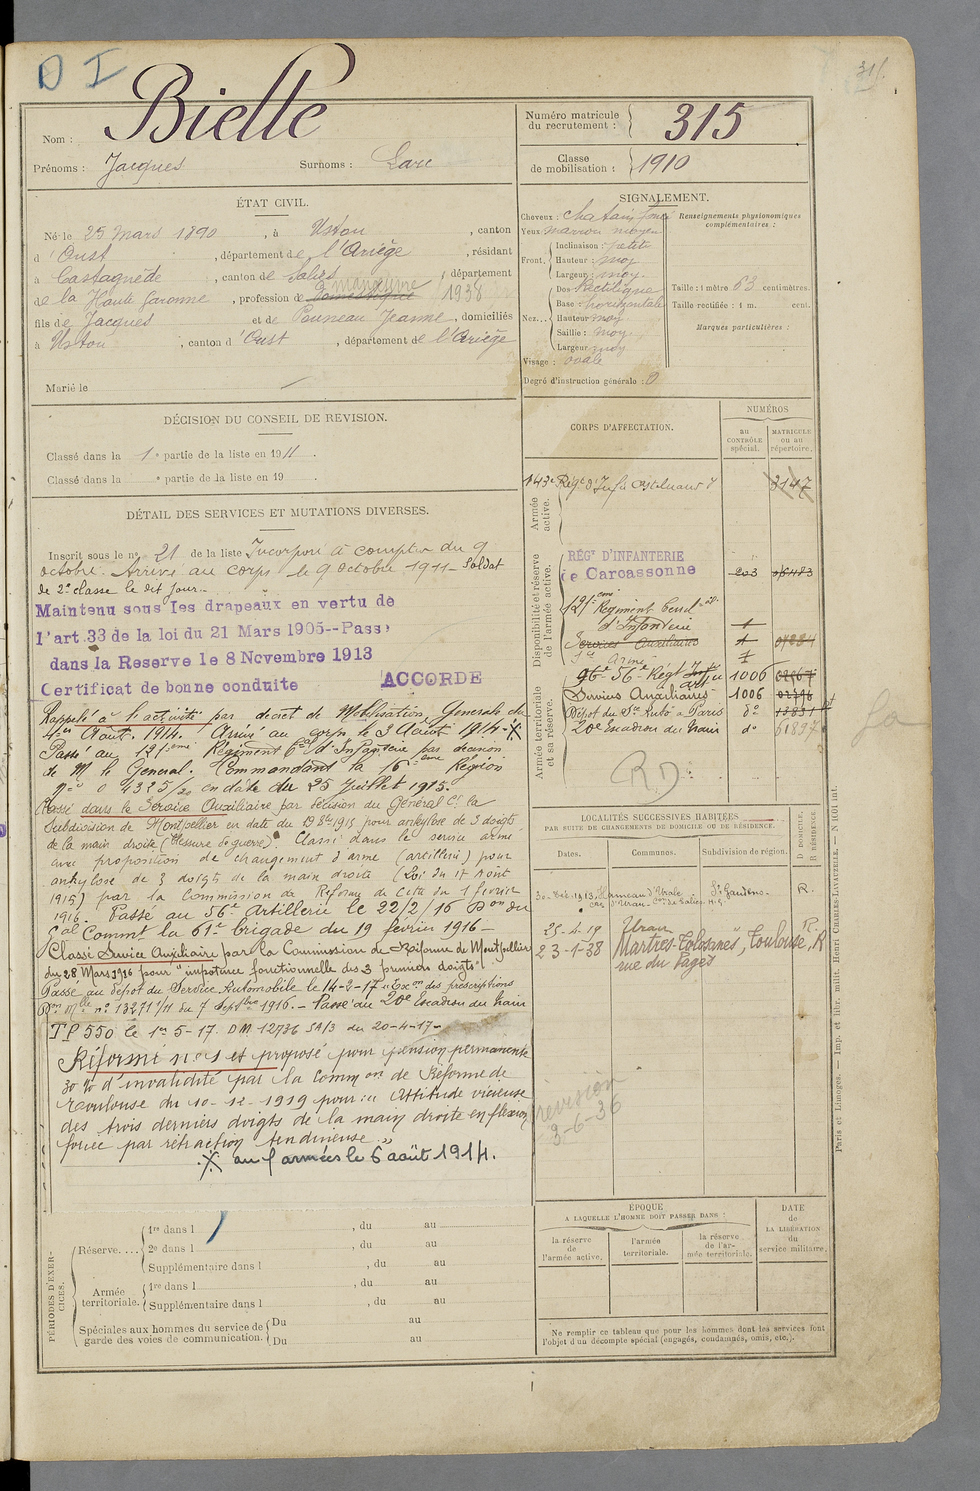 D I
316
Bielle
Nom :
Prénoms : Jacques Surnoms : Lare
Numéro matricule du recrutement : 315
Classe de mobilisation : 1910
ÉTAT CIVIL.
Né le 25 Mars 1890, à Ustou, canton
d'Oust, département de l'Ariège, résidant
à Castagnède, canton de Salies, département
de la Haute Garonne, profession de domestique manœuvre 1938
fils de Jacques et de Pouneau Jeanne, domiciliés
à Ustou, canton d'Oust, département de l'Ariège
Marié le
SIGNALEMENT.
Cheveux : chatain foncé
Yeux marron moyen
Front, Inclinaison : petite
Hauteur : moy
Largeur : moy.
Nez... Dos Rectiligne
Base : horizontale
Hauteur moy
Saillie : moy
Largeur moy
Visage : ovale
Degré d'instruction générale : 0
Renseignements physionomiques complémentaires :
Taille : 1 mètre 63 centimètres.
Taille rectifiée : 1 m. cent.
Marques particulières :
DÉCISION DU CONSEIL DE REVISION.
Classé dans la 1e partie de la liste en 1911.
Classé dans la e partie de la liste en 19 .
DÉTAIL DES SERVICES ET MUTATIONS DIVERSES.
Inscrit sous le no 21 de la liste Incorporé à compter du 9
octobre. Arrivé au corps le 9 octobre 1911 - Soldat
de 2e classe le dit jour.
Maintenu sous les drapeaux en vertu de
l'art.33 de la loi du 21 Mars 1905--Passé
dans la Reserve le 8 Novembre 1913
Certificat de bonne conduite ACCORDE
Rappelé à l'activité par décret de Mobilisation Générale du
1er Août 1914. Arrivé au corps le 3 Août 1914. X
Passé au 121eme Régiment d'Infanterie par décision
de M le Général Commandant la 16eme Région
no 4325/20 en date du 25 Juillet 1915.
Passé dans le Service Auxiliaire par décision du Général Ct la
Subdivision de Montpellier en date du 19 8bre 1915 pour ankylose de 3 doigts
de la main droite (Blessure de guerre). Classé dans le service armé
avec proposition de changement d'arme (artillerie) pour
ankylose de 3 doigts de la main droite (Loi du 17 Août
1915) par la Commission de Réforme de Cette du 1 février
1916. Passé au 56e Artillerie le 22/2/16 Don du
Gal Commt la 61e brigade du 19 février 1916 -
Classé Service Auxiliaire par la Commission de Réforme de Montpellier
du 28 Mars 1916 pour "impotence fonctionnelle des 3 premiers doigts".
Passé au dépôt du Service Automobile le 14-2-17 "Exon des prescriptions
Don Mlle no 13271 1/11 du 7 Septbre 1916. - Passé au 20e Escadron du Train
TP 550 le 1er 5-17. DM 12736 SA/3 du 20-4-17-
Réformé no 1 et proposé pour pension permanente
30 % d'invalidité par la Common de Réforme de
Toulouse du 10-12-1919 pour : Attitude vicieuse
des trois derniers doigts de la main droite en flexion
forcée par rétraction tendineuse."
X aux armées le 6 août 1914.
CORPS D'AFFECTATION.
NUMÉROS
au CONTRÔLE spécial.
MATRICULE ou au répertoire.
Armée active.
143e Régt d'Infie Castelnaudy 3147
Disponibilité et réserve de l'armée active.
RÉGT D'INFANTERIE
de Carcassonne 203 06483
121eme Régiment
d'Infanterie 1
Services Auxiliaires 1 04281
Armé 1
56e Régt Artie 1006 02567
Armée territoriale et sa réserve.
Services Auxiliaires 1006 02396
Dépôt du Sce Auto à Paris do 13831
20e Escadron du Train do 61837
RD
LOCALITÉS SUCCESSIVES HABITÉES
PAR SUITE DE CHANGEMENTS DE DOMICILE OU DE RÉSIDENCE.
Dates. Communes. Subdivision de région. D DOMICILE. R RÉSIDENCE
30-Déc.1913 Hameau d' St Gaudens. R.
25-4-19 Uran R
23-1-38 Martres-Tolosane, Toulouse, R
rue du Pagès
révision
3-6-36
PÉRIODES D'EXERCICES.
Réserve.... 1re dans l , du au
2e dans l , du au
Supplémentaire dans l , du au
Armée territoriale. 1re dans l , du au
Supplémentaire dans l , du au
Spéciales aux hommes du service de garde des voies de communication. Du au
Du au
ÉPOQUE
A LAQUELLE L'HOMME DOIT PASSER DANS :
la réserve de l'armée active.
l'armée territoriale.
la réserve de l'armée territoriale.
DATE de LA LIBÉRATION du service militaire.
Ne remplir ce tableau que pour les hommes dont les services font
l'objet d'un décompte spécial (engagés, condamnés, omis, etc.).
Paris et Limoges. — Imp. et libr. milit. Henri CHARLES-LAVAUZELLE. — N 1601 int.